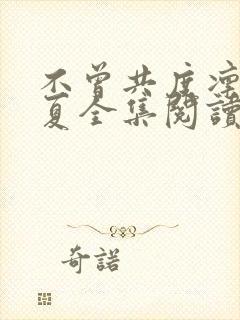 不曾共度凜
夏全集閱讀
奇諾